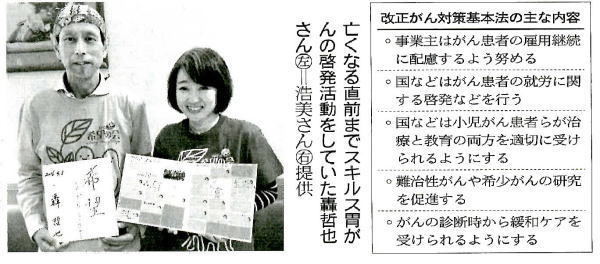 希望の会
希望
轟哲也
亡くなる直前までスキルス胃が
んの啓発活動をしていた轟哲也
さん㊧＝浩美さん㊨提供
改正がん対策基本法の主な内容
○事業主はがん患者の雇用継続
に配慮するよう努める
○国などはがん患者の就労に関
する啓発などを行う
○国などは小児がん患者らが治
療と教育の両方を適切に受け
られるようにする
○難治性がんや希少がんの研究
を促進する
○がんの診断時から緩和ケアを
受けられるようにする